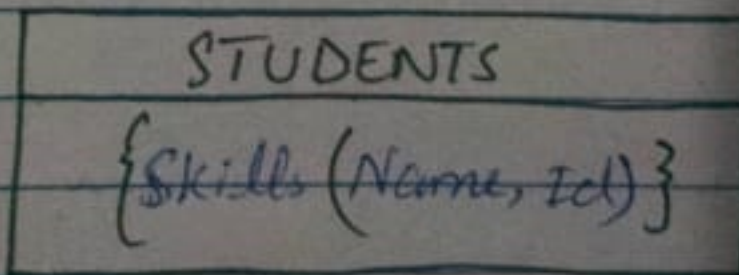 STUDENTS
{Skills (Name, Id)}